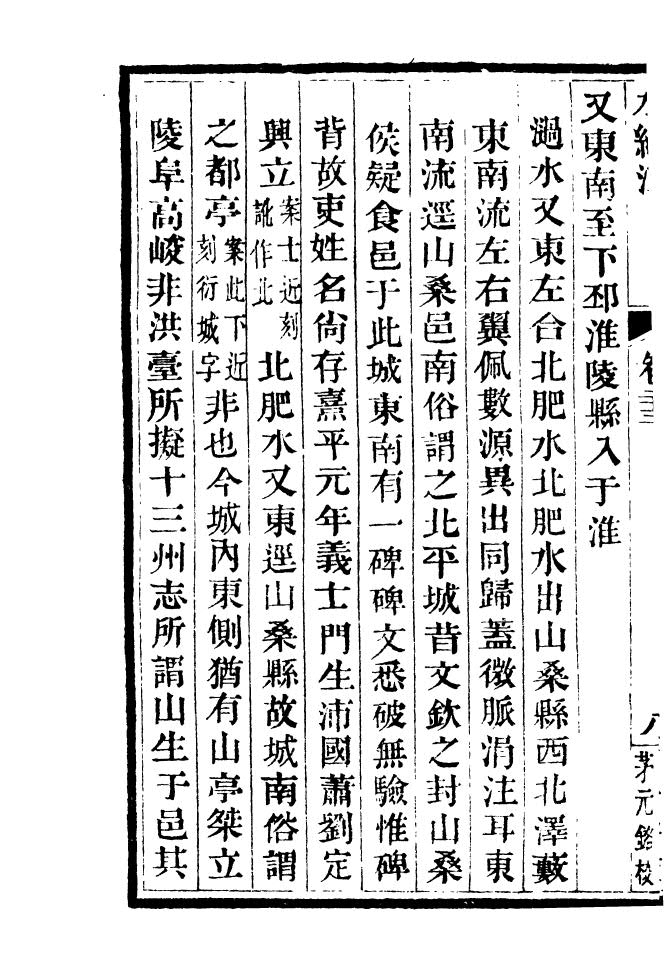 又東南至下邳淮陵縣入于淮
濄水又東左合北肥水北肥水出山桑縣西北澤藪
東南流左右翼佩數源異出同歸蓋微脈涓注耳東
南流逕山桑邑南俗謂之北平城昔文欽之封山桑
侯疑食邑于此城東南有一碑碑文悉破無驗惟碑
背故吏姓名尚存熹平元年義士門生沛國蕭劉定
興立案士近刻訛作北北肥水又東逕山桑縣故城南俗謂
之都亭案此下近刻衍城字非也今城內東側猶有山亭桀立
陵阜高峻非洪臺所擬十三州志所謂山生于邑其